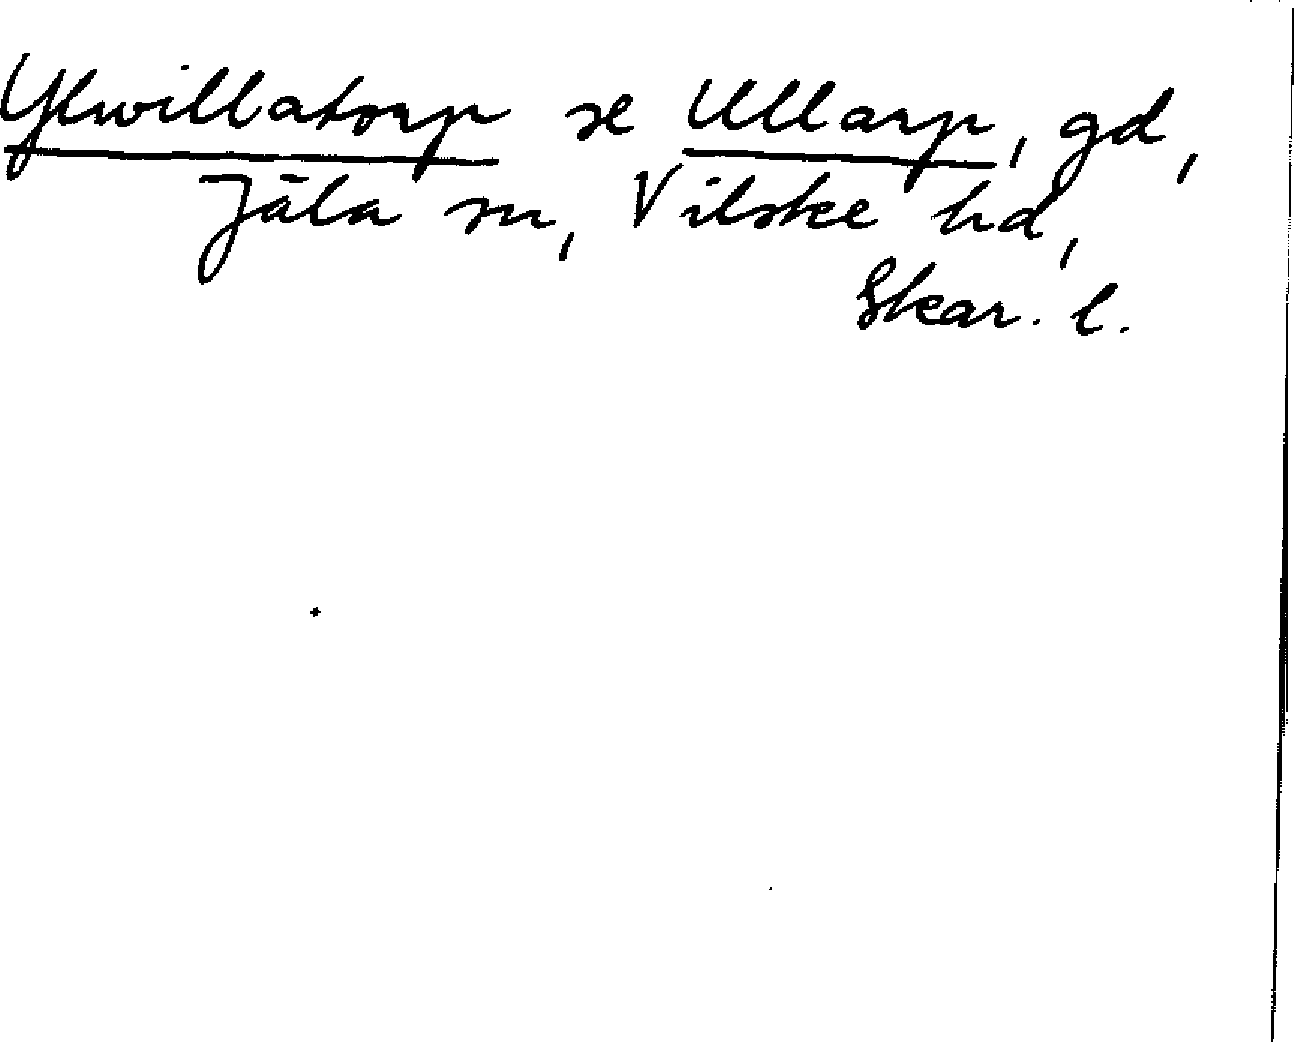 Ylwillatorp se Ullarp, gd,
Jäla sn, Vilske hd,
Skar. l.